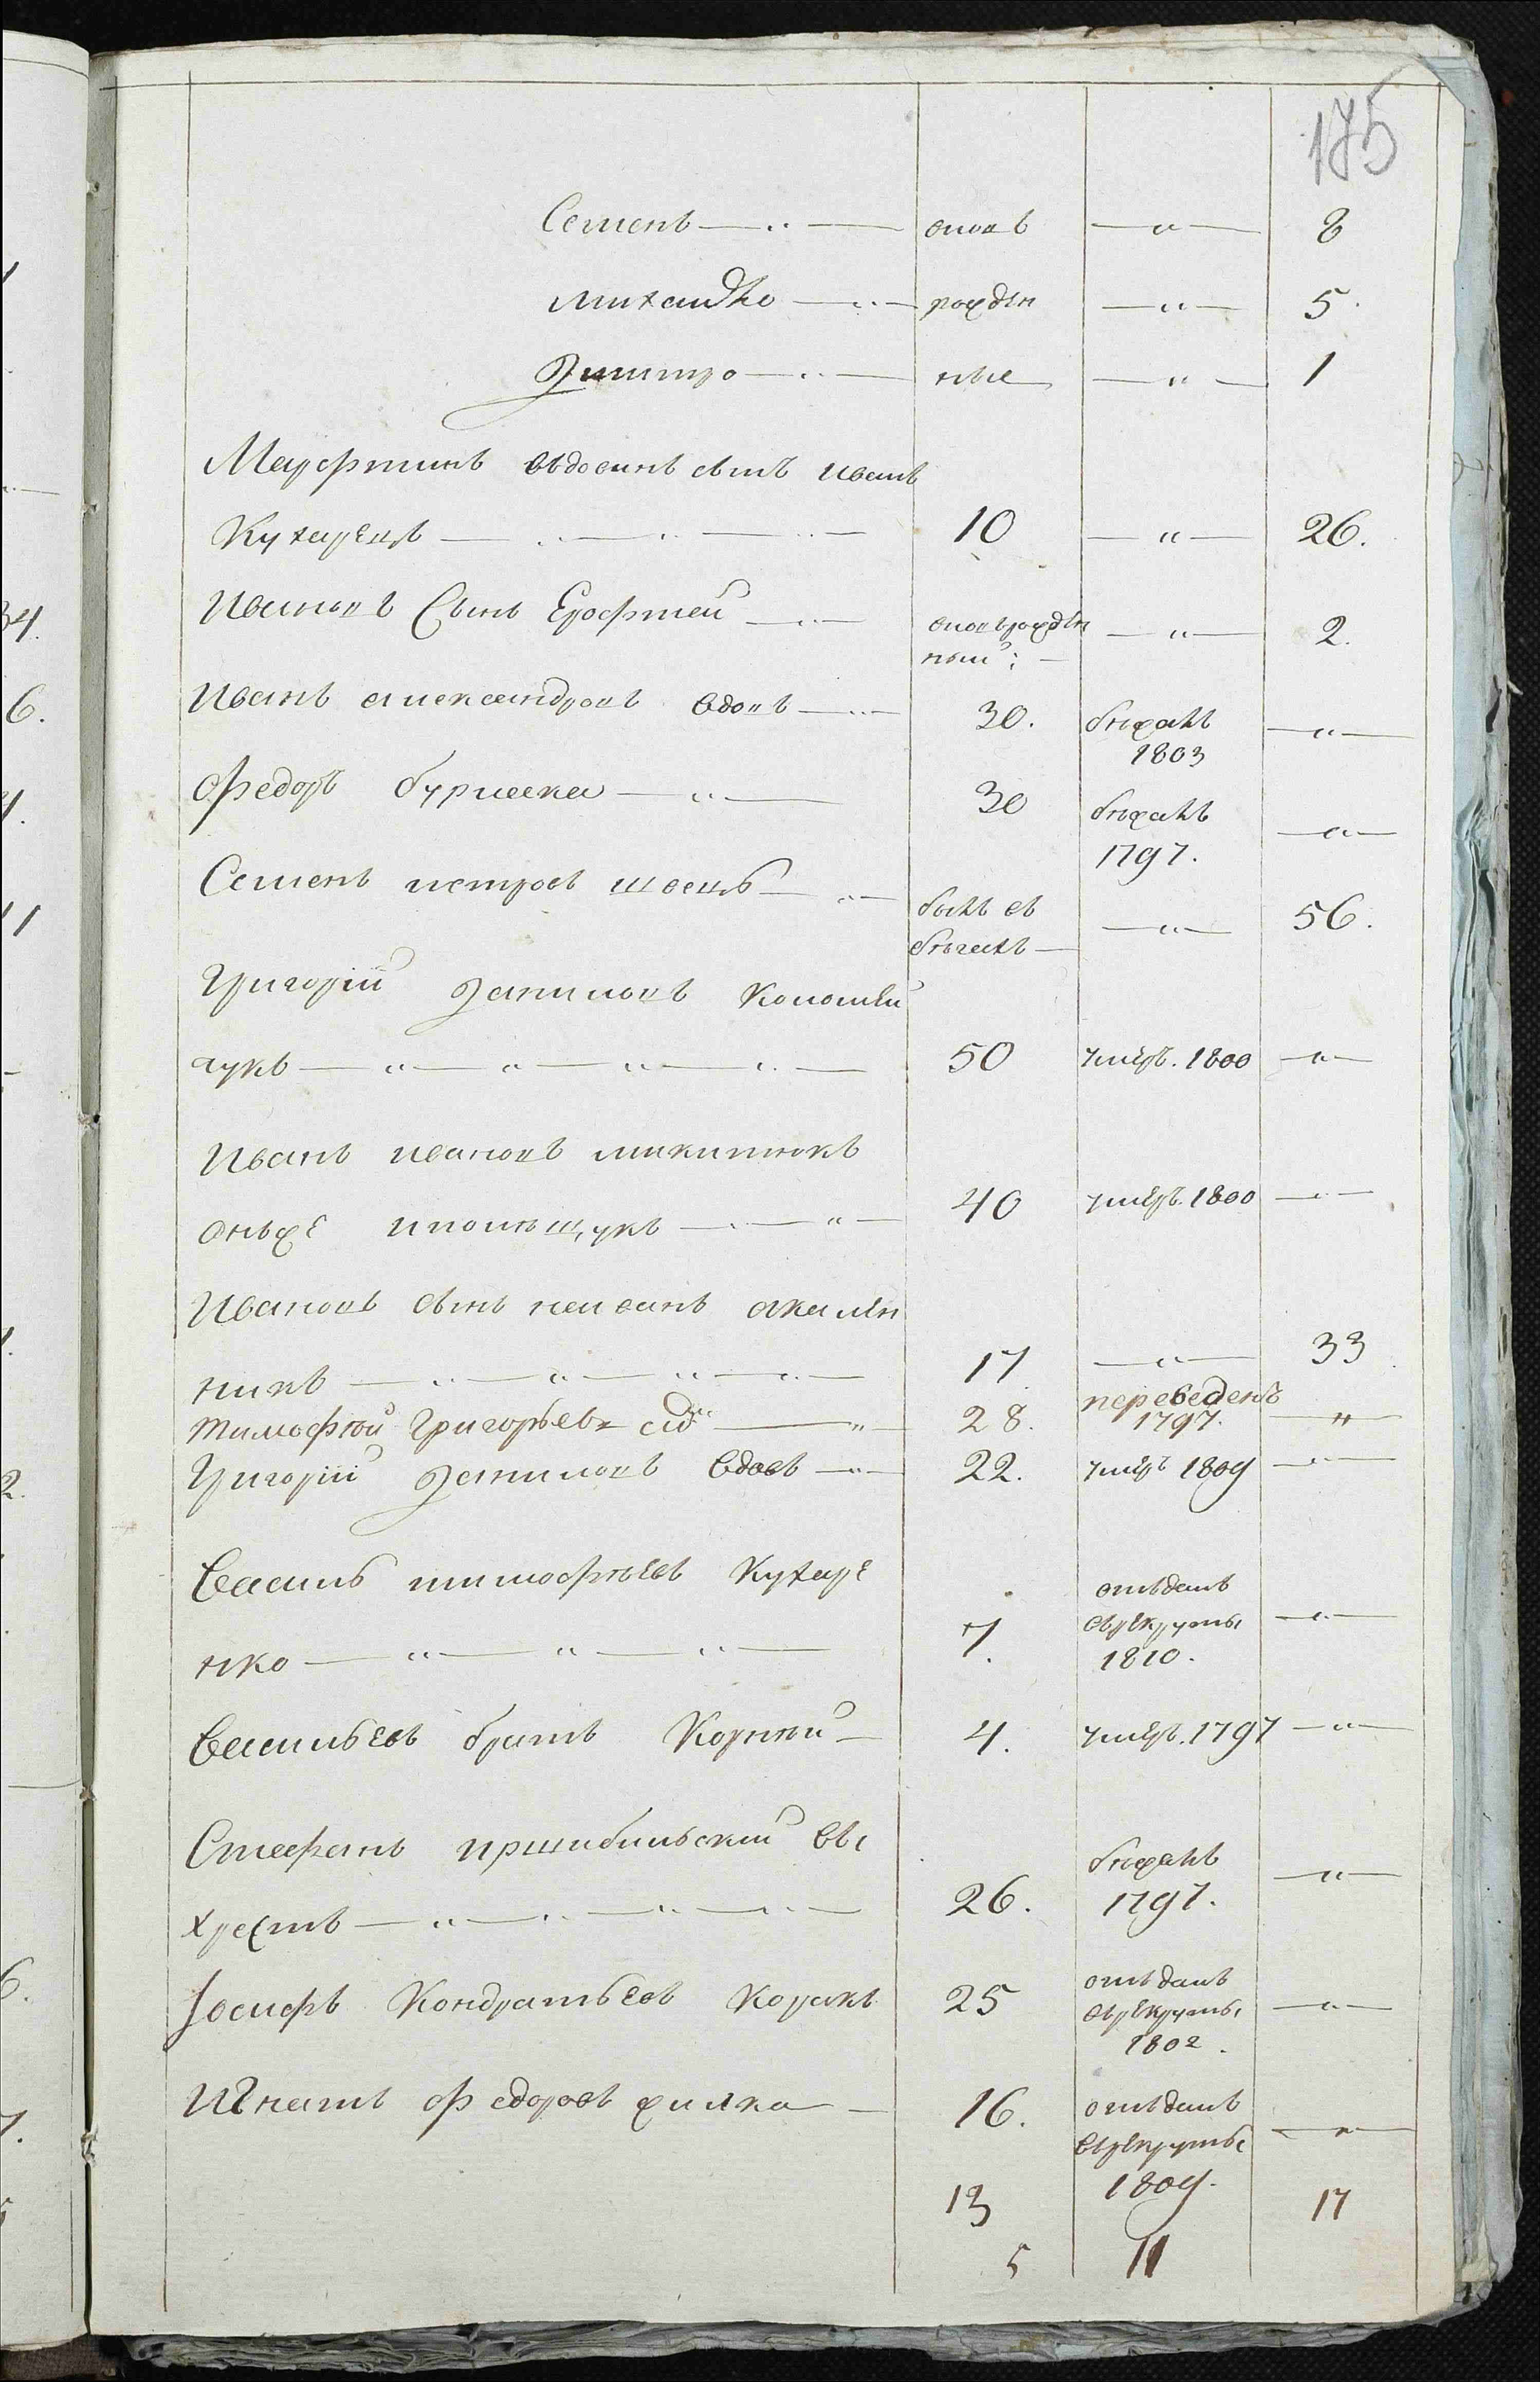 175
Семенъ — " — вновь — " — 8
михайло — " — рожден — " — 5
Димитро — " — ные — " — 1
Марфтинъ въдовинъ сынъ иванъ
Кухарецъ — " — 10 — " — 26.
Ивановъ Сынъ Ерофтей — " — вновьрожден — " — 2.
ный;
Иванъ александровъ вдовъ — " — 30. бежалъ — " —
1803
Федоръ бурлака — " — 30 бежалъ — " —
1797.
Семенъ петровъ швецъ — " — былъ въ — " — 56.
бегахъ —
Григорій Даниловъ Коломей
чукъ — " — " — " — " — 50 умеръ. 1800 — " —
Иванъ ивановъ микитюкъ
онъже иполищукъ — " — " — 40 умеръ. 1800 — " —
Ивановъ сынъ иванъ
никъ — " — " — " — " — 17 — " — 33
Тимофей Григорьевъ — " — 28. переведенъ 1797. — " —
Григорій Даниловъ вдовъ — " — 22. умеръ 1809 — " —
Василь тимофеевъ Кухаре
нко — " — " — " — 7. отъданъ
върекруты — " —
1810.
Васильевъ братъ Корней — 4. умеръ. 1797 — " —
Стефанъ пршибильский вы
хрестъ — " — " — " — " — 26. бежалъ 1797. — " —
Іосифъ Кондратьевъ Коракъ 25 отъданъ
върекруты — " —
1802.
Игнатъ федоровъ жилка — 16. отъданъ
върекруты — " —
1809.
13 17
5 11